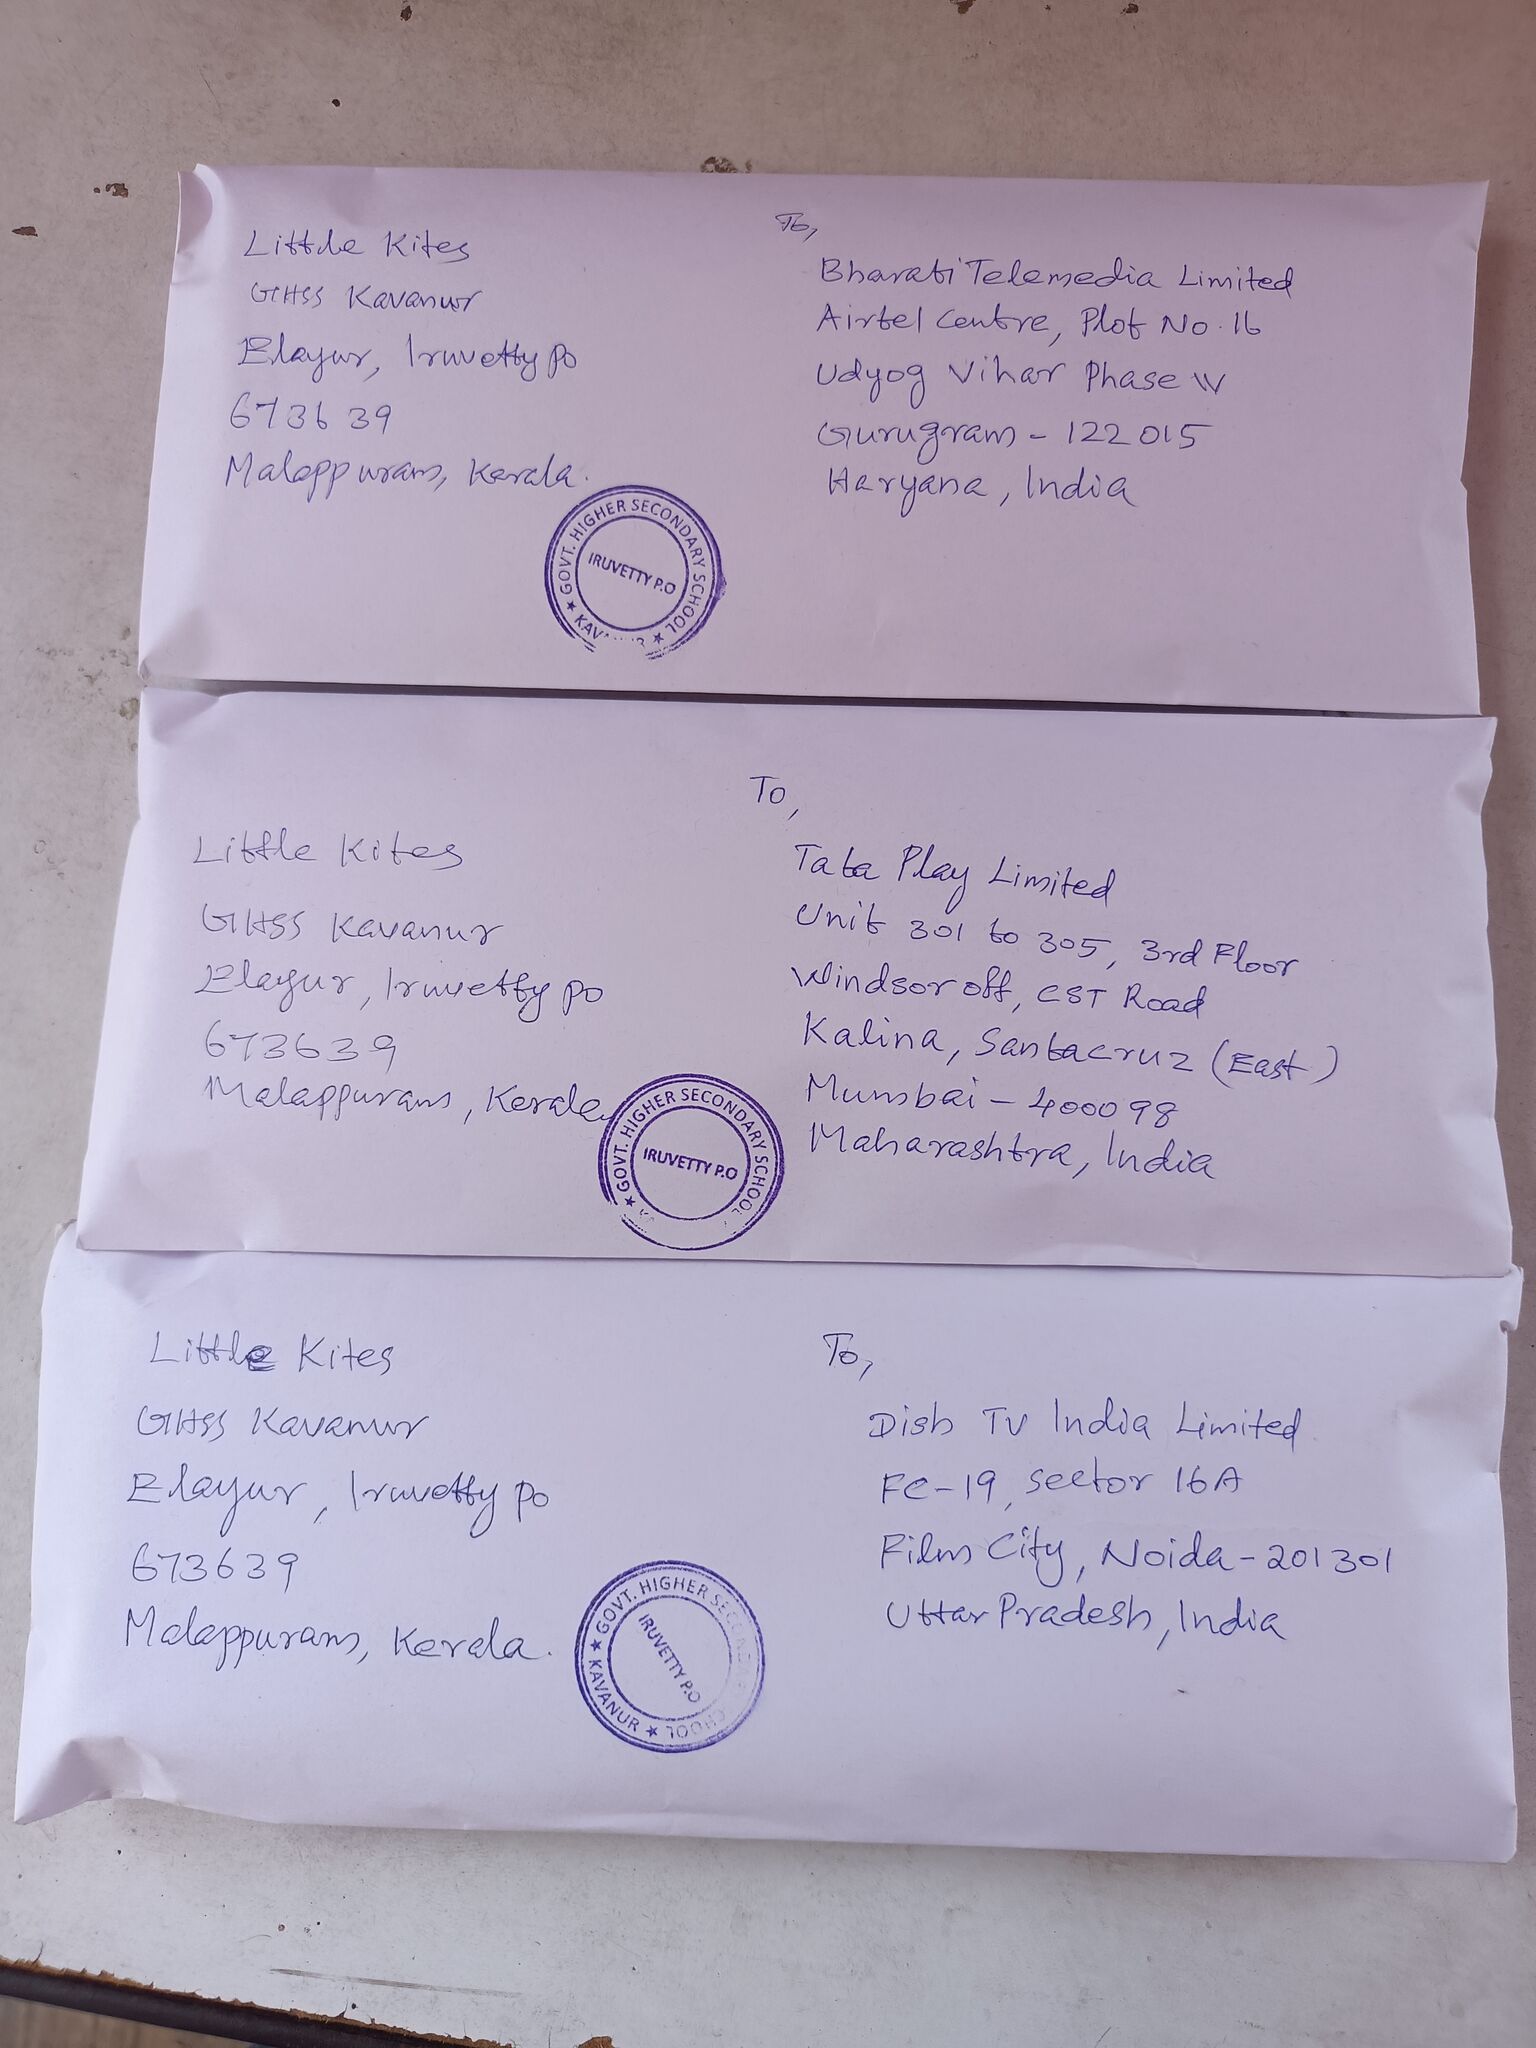 Little Kites
GHSS Kavanur
Elayur, Iruvetty po
673639
Malappuram, Kerala.
To,
Bharati Telemedia Limited
Airtel Centre, Plot No. 16
Udyog Vihar Phase IV
Gurugram - 122015
Haryana, India
★ GOVT. HIGHER SECONDARY SCHOOL ★
IRUVETTY P.O
Little Kites
GHSS Kavanur
Elayur, Iruvetty po
673639
Malappuram, Kerala
To,
Tata Play Limited
Unit 301 to 305, 3rd Floor
Windsor off, CST Road
Kalina, Santacruz (East)
Mumbai - 400098
Maharashtra, India
★ GOVT. HIGHER SECONDARY SCHOOL
IRUVETTY P.O
Little Kites
GHSS Kavanur
Elayur, Iruvetty po
673639
Malappuram, Kerala.
To,
Dish TV India Limited
FC-19, Sector 16A
Film City, Noida - 201301
Uttar Pradesh, India
★ GOVT. HIGHER SECONDARY SCHOOL ★ KAVANUR
IRUVETTY P.O